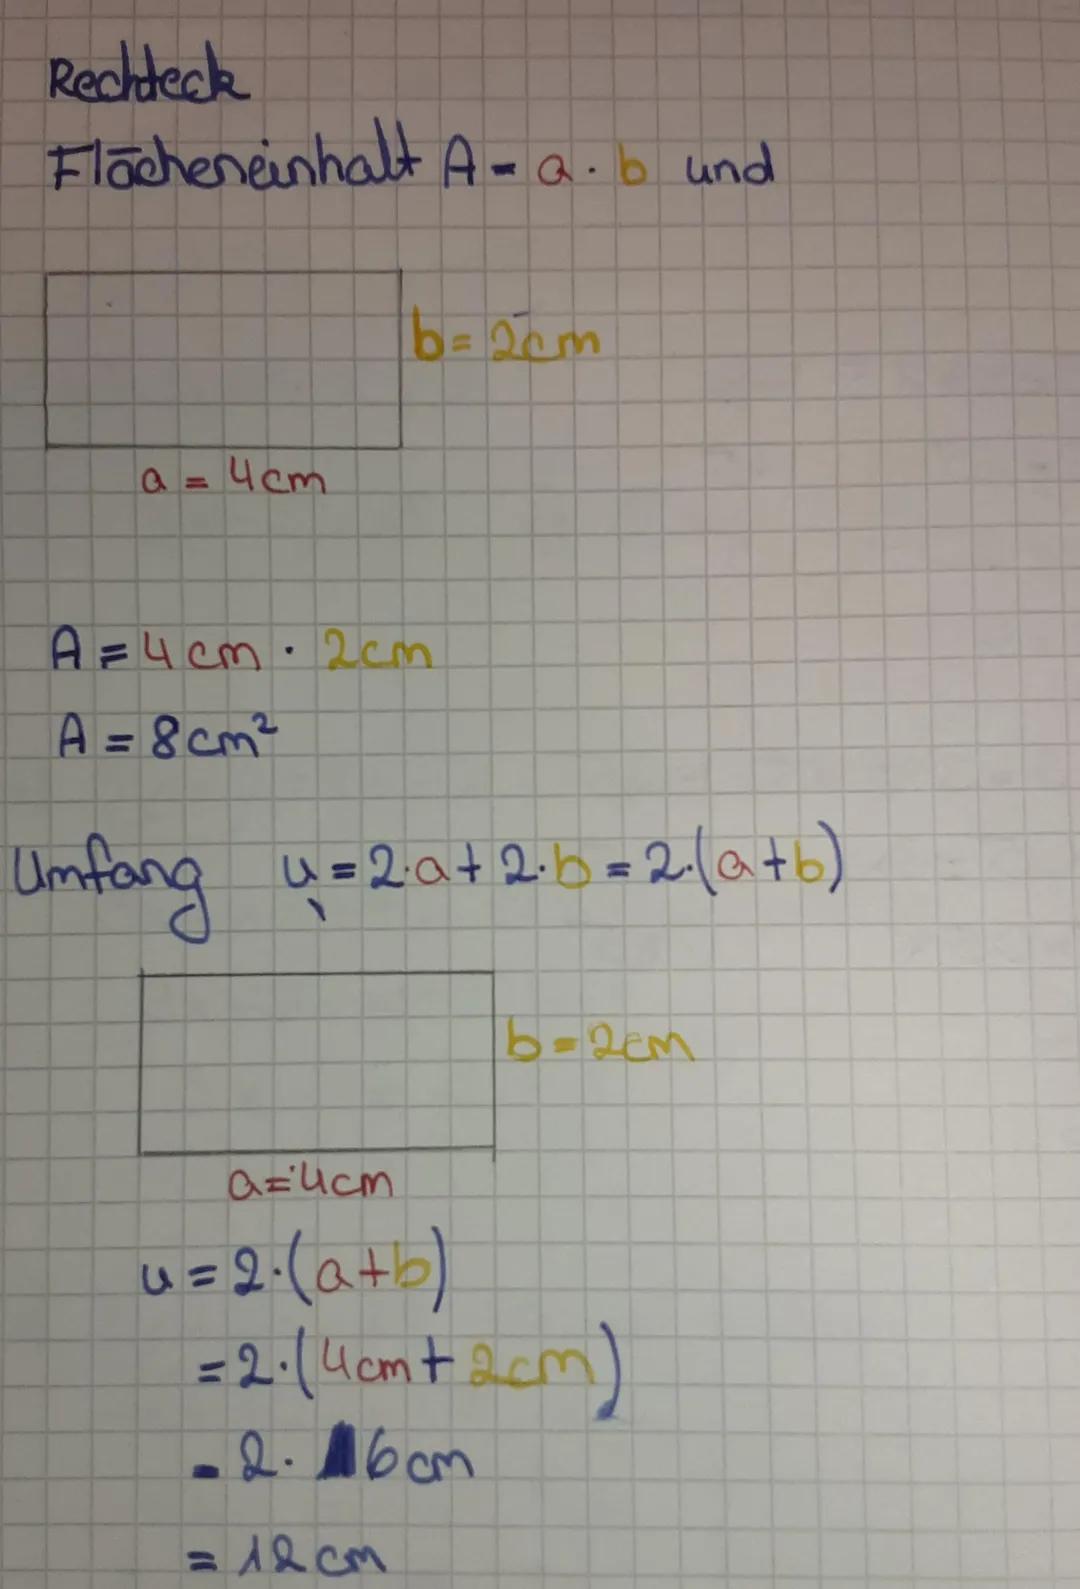 Rechteck
Flächeneinhalt A = a · b und
b = 2cm
a = 4cm
A = 4cm · 2cm
A = 8cm²
Umfang u = 2·a + 2·b = 2·(a+b)
b = 2cm
a = 4cm
u = 2·(a+b)
= 2·(4cm + 2cm)
= 2· 6cm
= 12cm